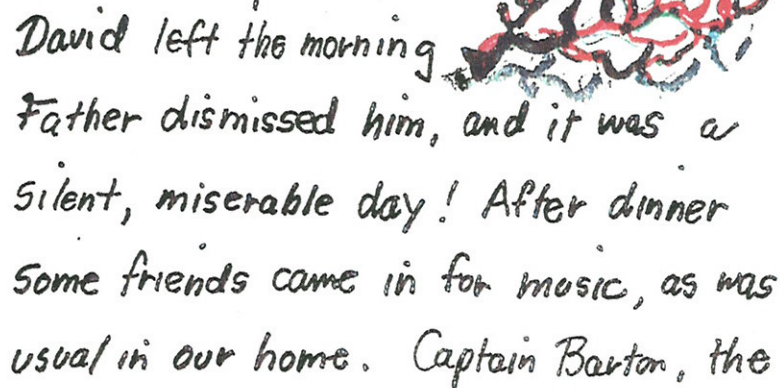 David left the morning
Father dismissed him, and it was a
silent, miserable day! After dinner
some friends came in for music, as was
usual in our home. Captain Barton, the